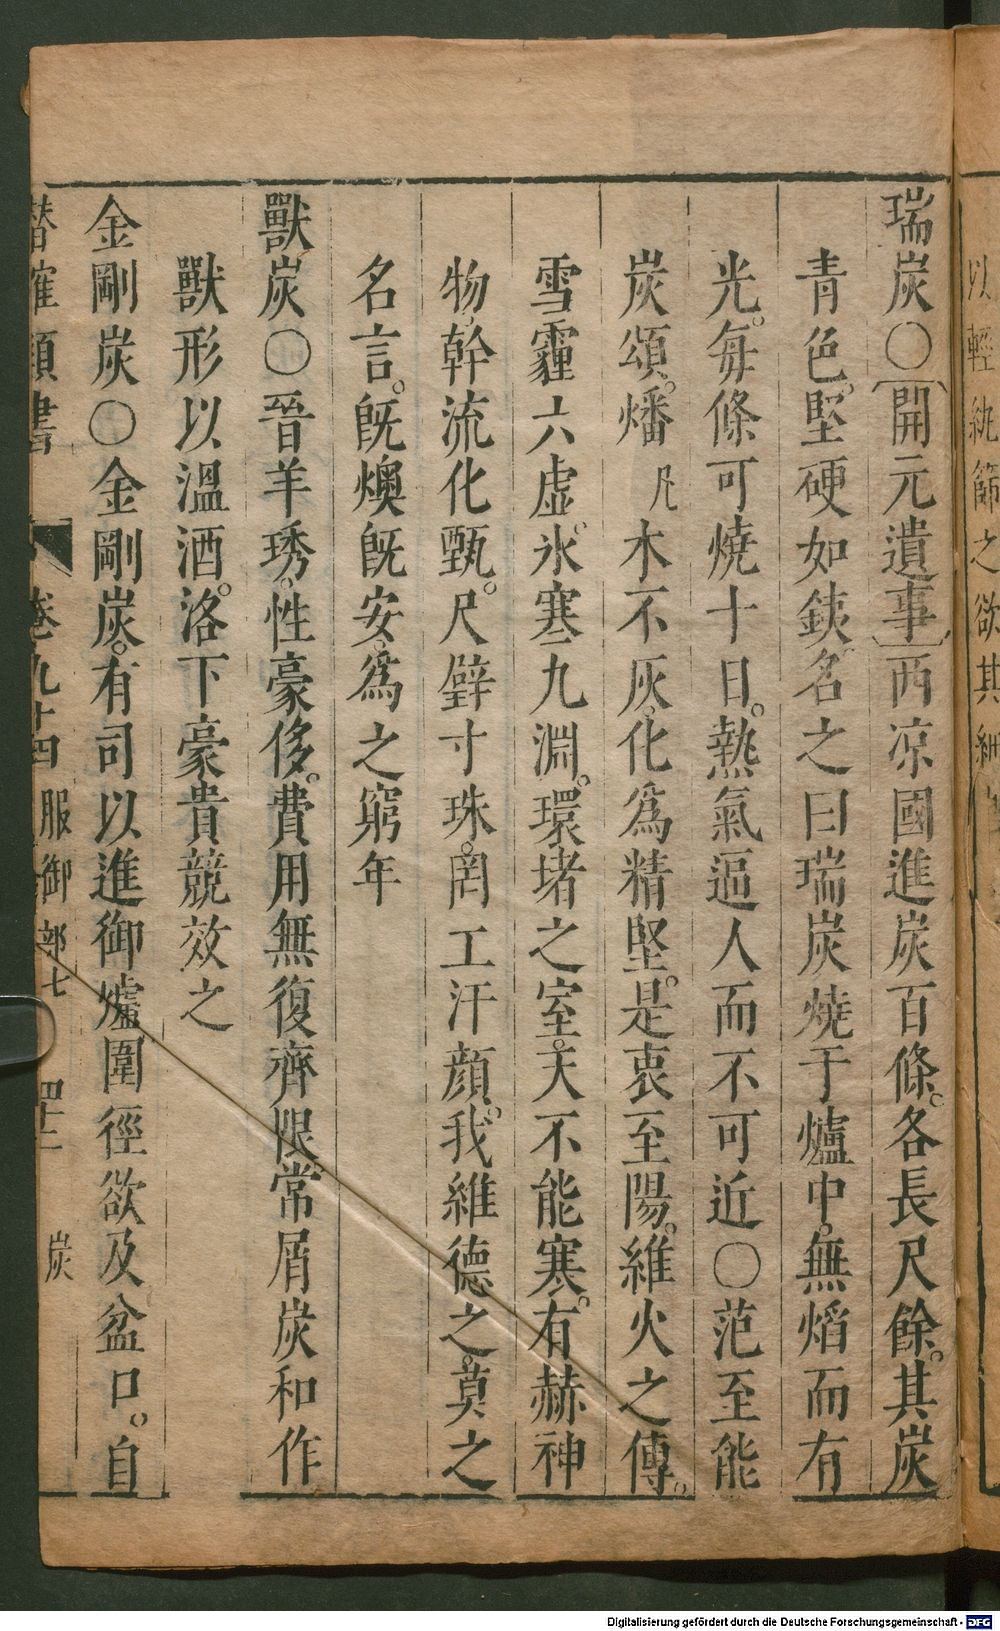 以輕紈篩之欲其細
瑞炭〇〔開元遺事〕西凉國進炭百條。各長尺餘。其炭
青色。堅硬如鉄。名之曰瑞炭燒于爐中。無熖而有
光。每條可燒十日。熱氣逼人而不可近〇范至能
炭頌。燔凡木不灰。化爲精堅。是衷至陽。維火之傳。
雪霾六虛。氷寒九淵。環堵之室。天不能寒。有赫神
物。幹流化甄。尺璧寸珠。罔工汗顏。我維德之。莫之
名言。旣燠旣安。爲之窮年
獸炭〇晉羊琇。性豪侈。費用無復齊限。常屑炭和作
獸形以溫酒。洛下豪貴競效之
金剛炭〇金剛炭。有司以進御爐圍徑欲及盆口。自
潛確類書 卷九十四 服御部七 四十二 炭
Digitalisierung gefördert durch die Deutsche Forschungsgemeinschaft - DFG